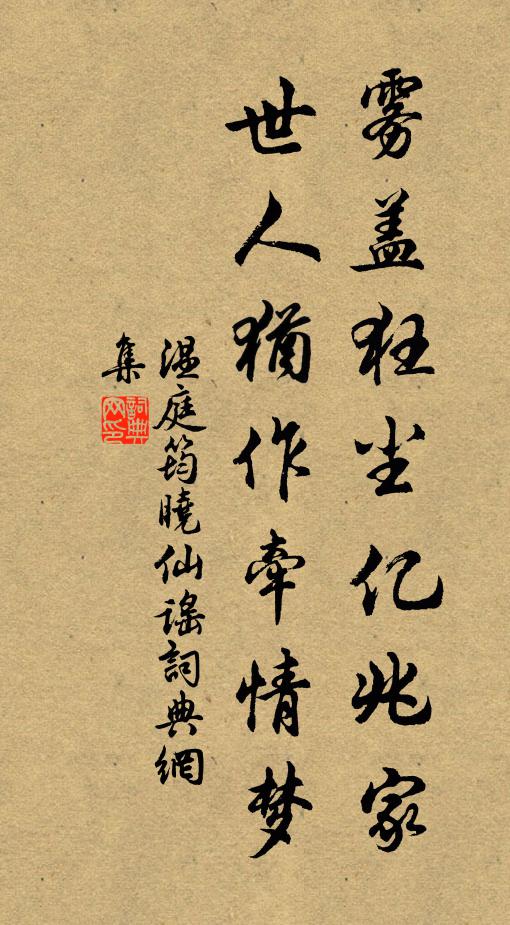 雾盖狂尘亿兆家
世人犹作牵情梦
温庭筠曉仙谣詞典網
集
詞典网印